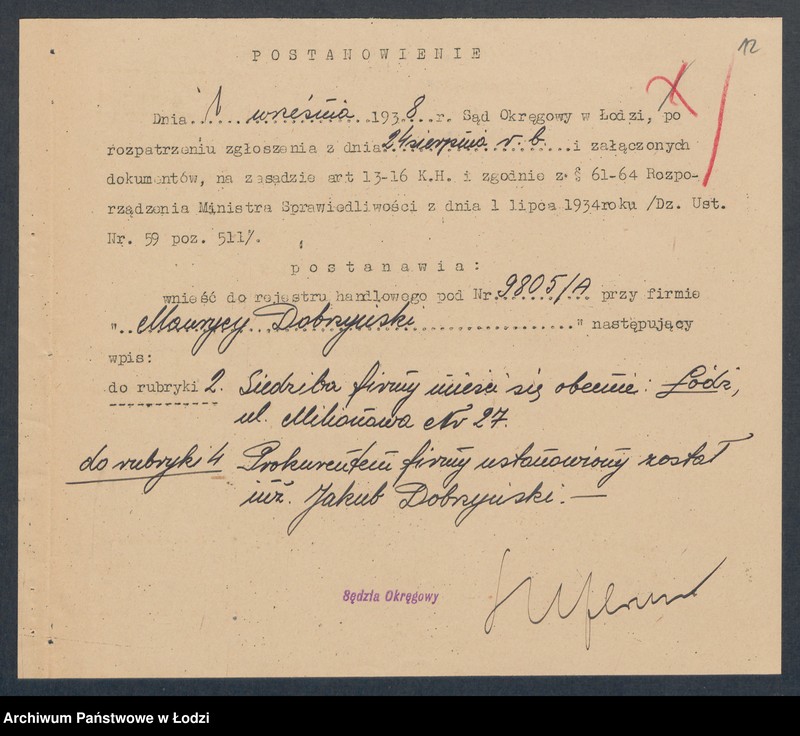 12
POSTANOWIENIE
Dnia 1 września 1938 r. Sąd Okręgowy w Łodzi, po
rozpatrzeniu zgłoszenia z dnia 24 sierpnia r. b. i załączonych
dokumentów, na zasadzie art 13-16 K.H. i zgodnie z § 61-64 Rozpo-
rządzenia Ministra Sprawiedliwości z dnia 1 lipca 1934roku /Dz. Ust.
Nr. 59 poz. 511/.
postanawia:
wnieść do rejestru handlowego pod Nr. 9805/A przy firmie
"Maurycy Dobrzyński" następujący
wpis:
do rubryki 2. Siedziba firmy mieści się obecnie: Łódź,
ul. Milionowa Nr 27.
do rubryki 4 Prokurentem firmy ustanowiony został
inż. Jakub Dobrzyński. —
Sędzia Okręgowy
Archiwum Państwowe w Łodzi